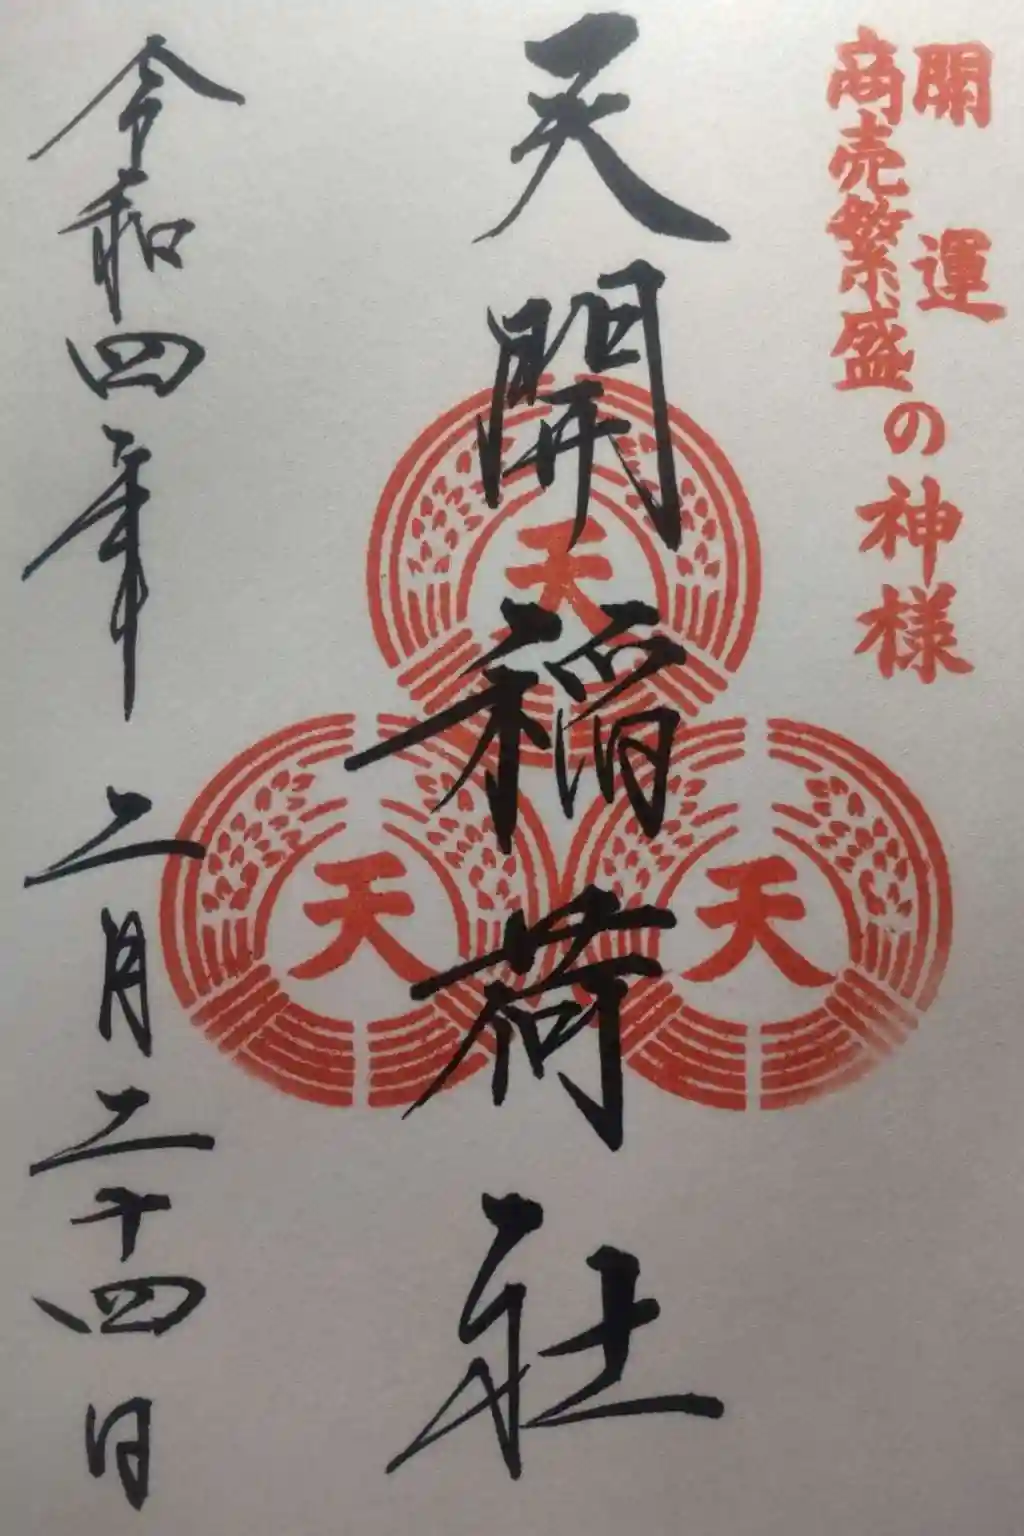 開運
商売繁盛
の神様
天開稲荷社
天
天
天
令和四年 二月二十四日